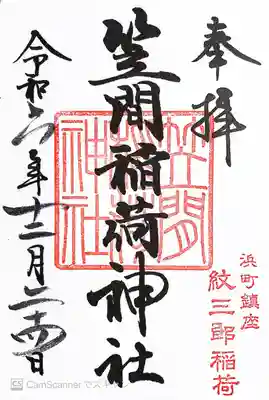 奉拝
浜町鎮座
紋三郎稲荷
笠間稲荷神社
笠間
稲荷
神社
令和六年十二月二十四日
CS CamScanner でスキャン